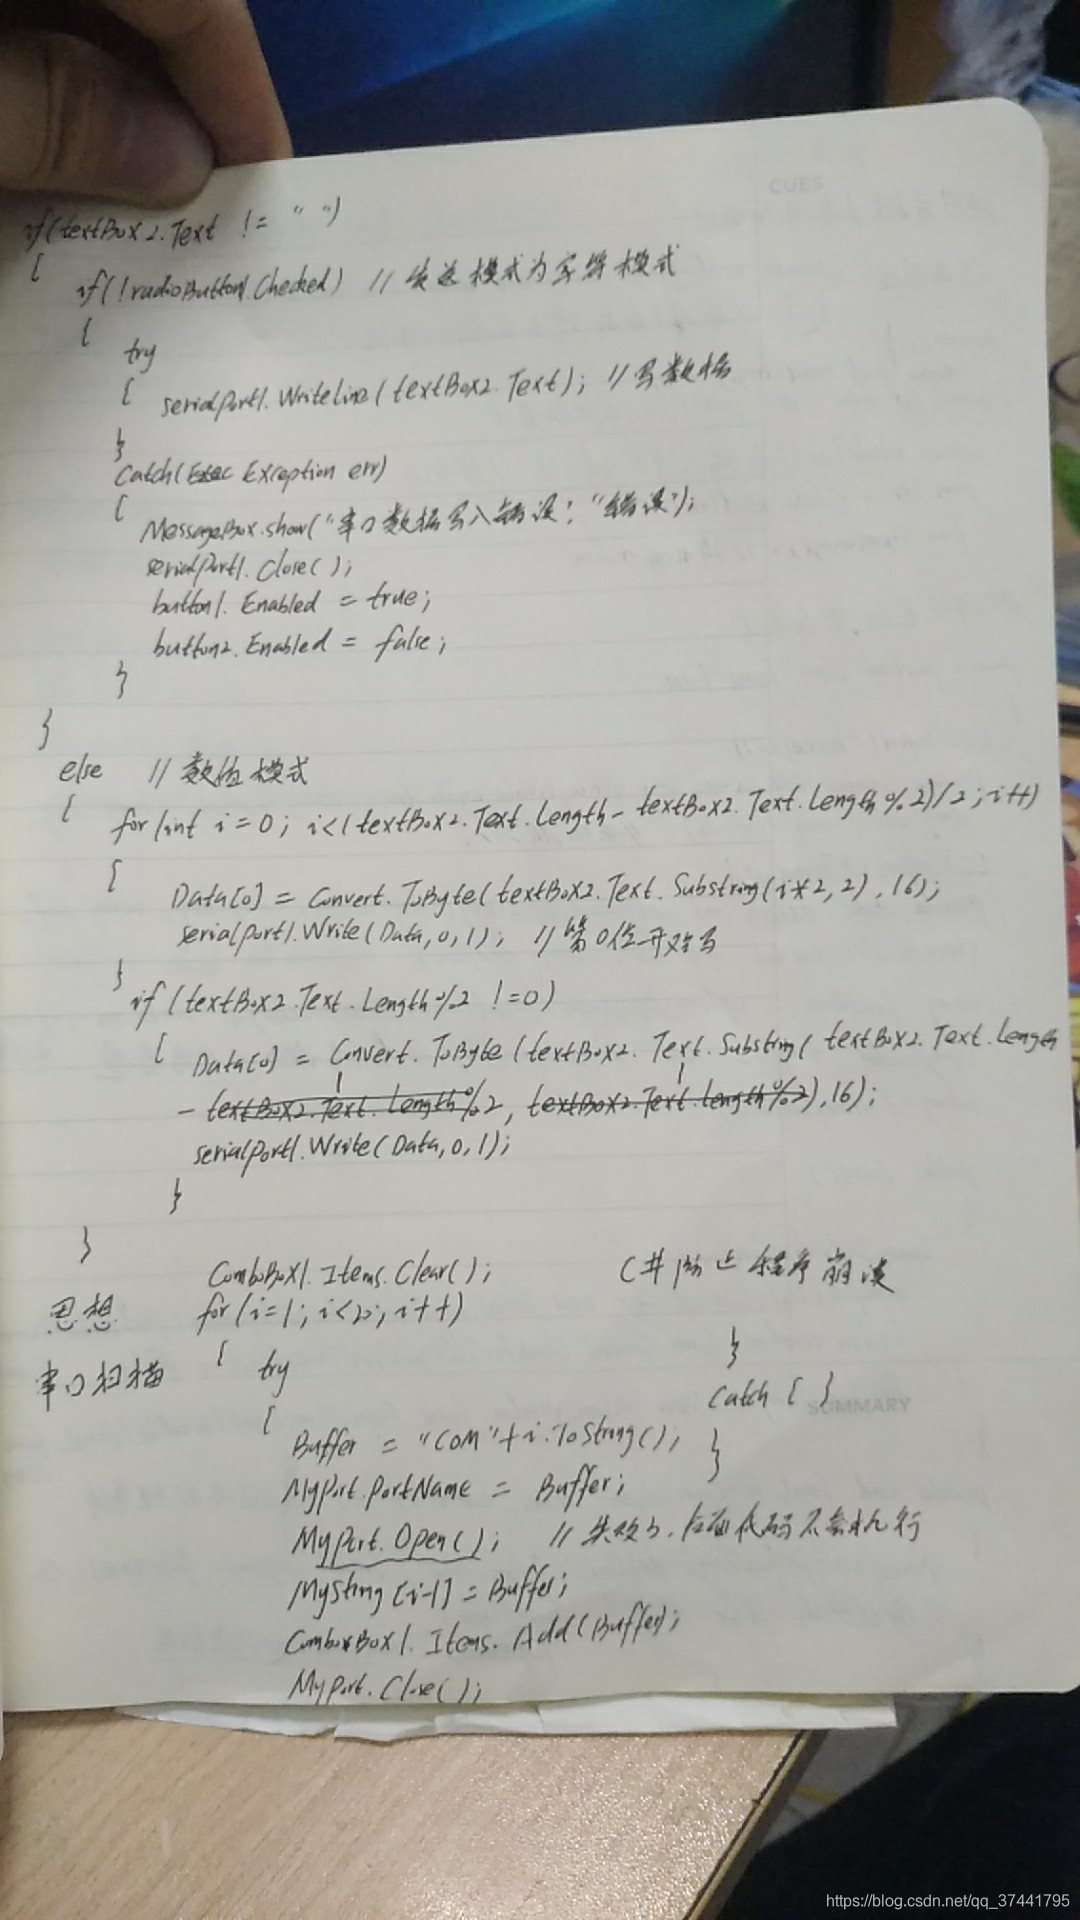 CUES
if(textBox2.Text != " ")
{
if(!radioButton1.Checked) // 发送模式为字符模式
{
try
{ serialPort1.WriteLine(textBox2.Text); // 写数据
}
Catch(Exec Exception err)
{
MessageBox.show("串口数据写入错误:"错误");
serialPort1.Close();
button1.Enabled = true;
button2.Enabled = false;
}
}
else // 数值模式
{ for(int i=0; i<(textBox2.Text.Length-textBox2.Text.Length%2)/2; i++)
{
Data[0] = Convert.ToByte(textBox2.Text.Substring(i*2,2),16);
serialPort1.Write(Data,0,1); // 第0位开始写
}
if(textBox2.Text.Length%2 !=0)
{ Data[0] = Convert.ToByte(textBox2.Text.Substring(textBox2.Text.Length
1 1
- textBox2.Text.Length%2, textBox2.Text.length%2),16);
serialPort1.Write(Data,0,1);
}
}
ComboBox1.Items.Clear(); C#防止程序崩溃
思想 for(i=1; i<20; i++)
串口扫描 { try }
{ Catch { }
SUMMARY
Buffer = "COM"+i.ToString(); }
MyPort.PortName = Buffer;
MyPort.Open(); // 失败了,后面代码不会执行
MyString[i-1]=Buffer;
ComboxBox1.Items.Add(Buffer);
MyPort.Close();
https://blog.csdn.net/qq_37441795